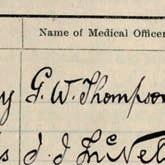 Name of Medical Officer
y G. W. Thompson
s J. J. McNe